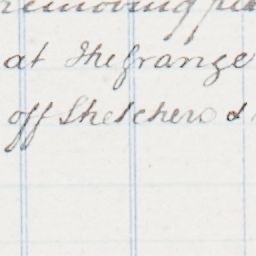 removing
at the Grange
off Sketchers &